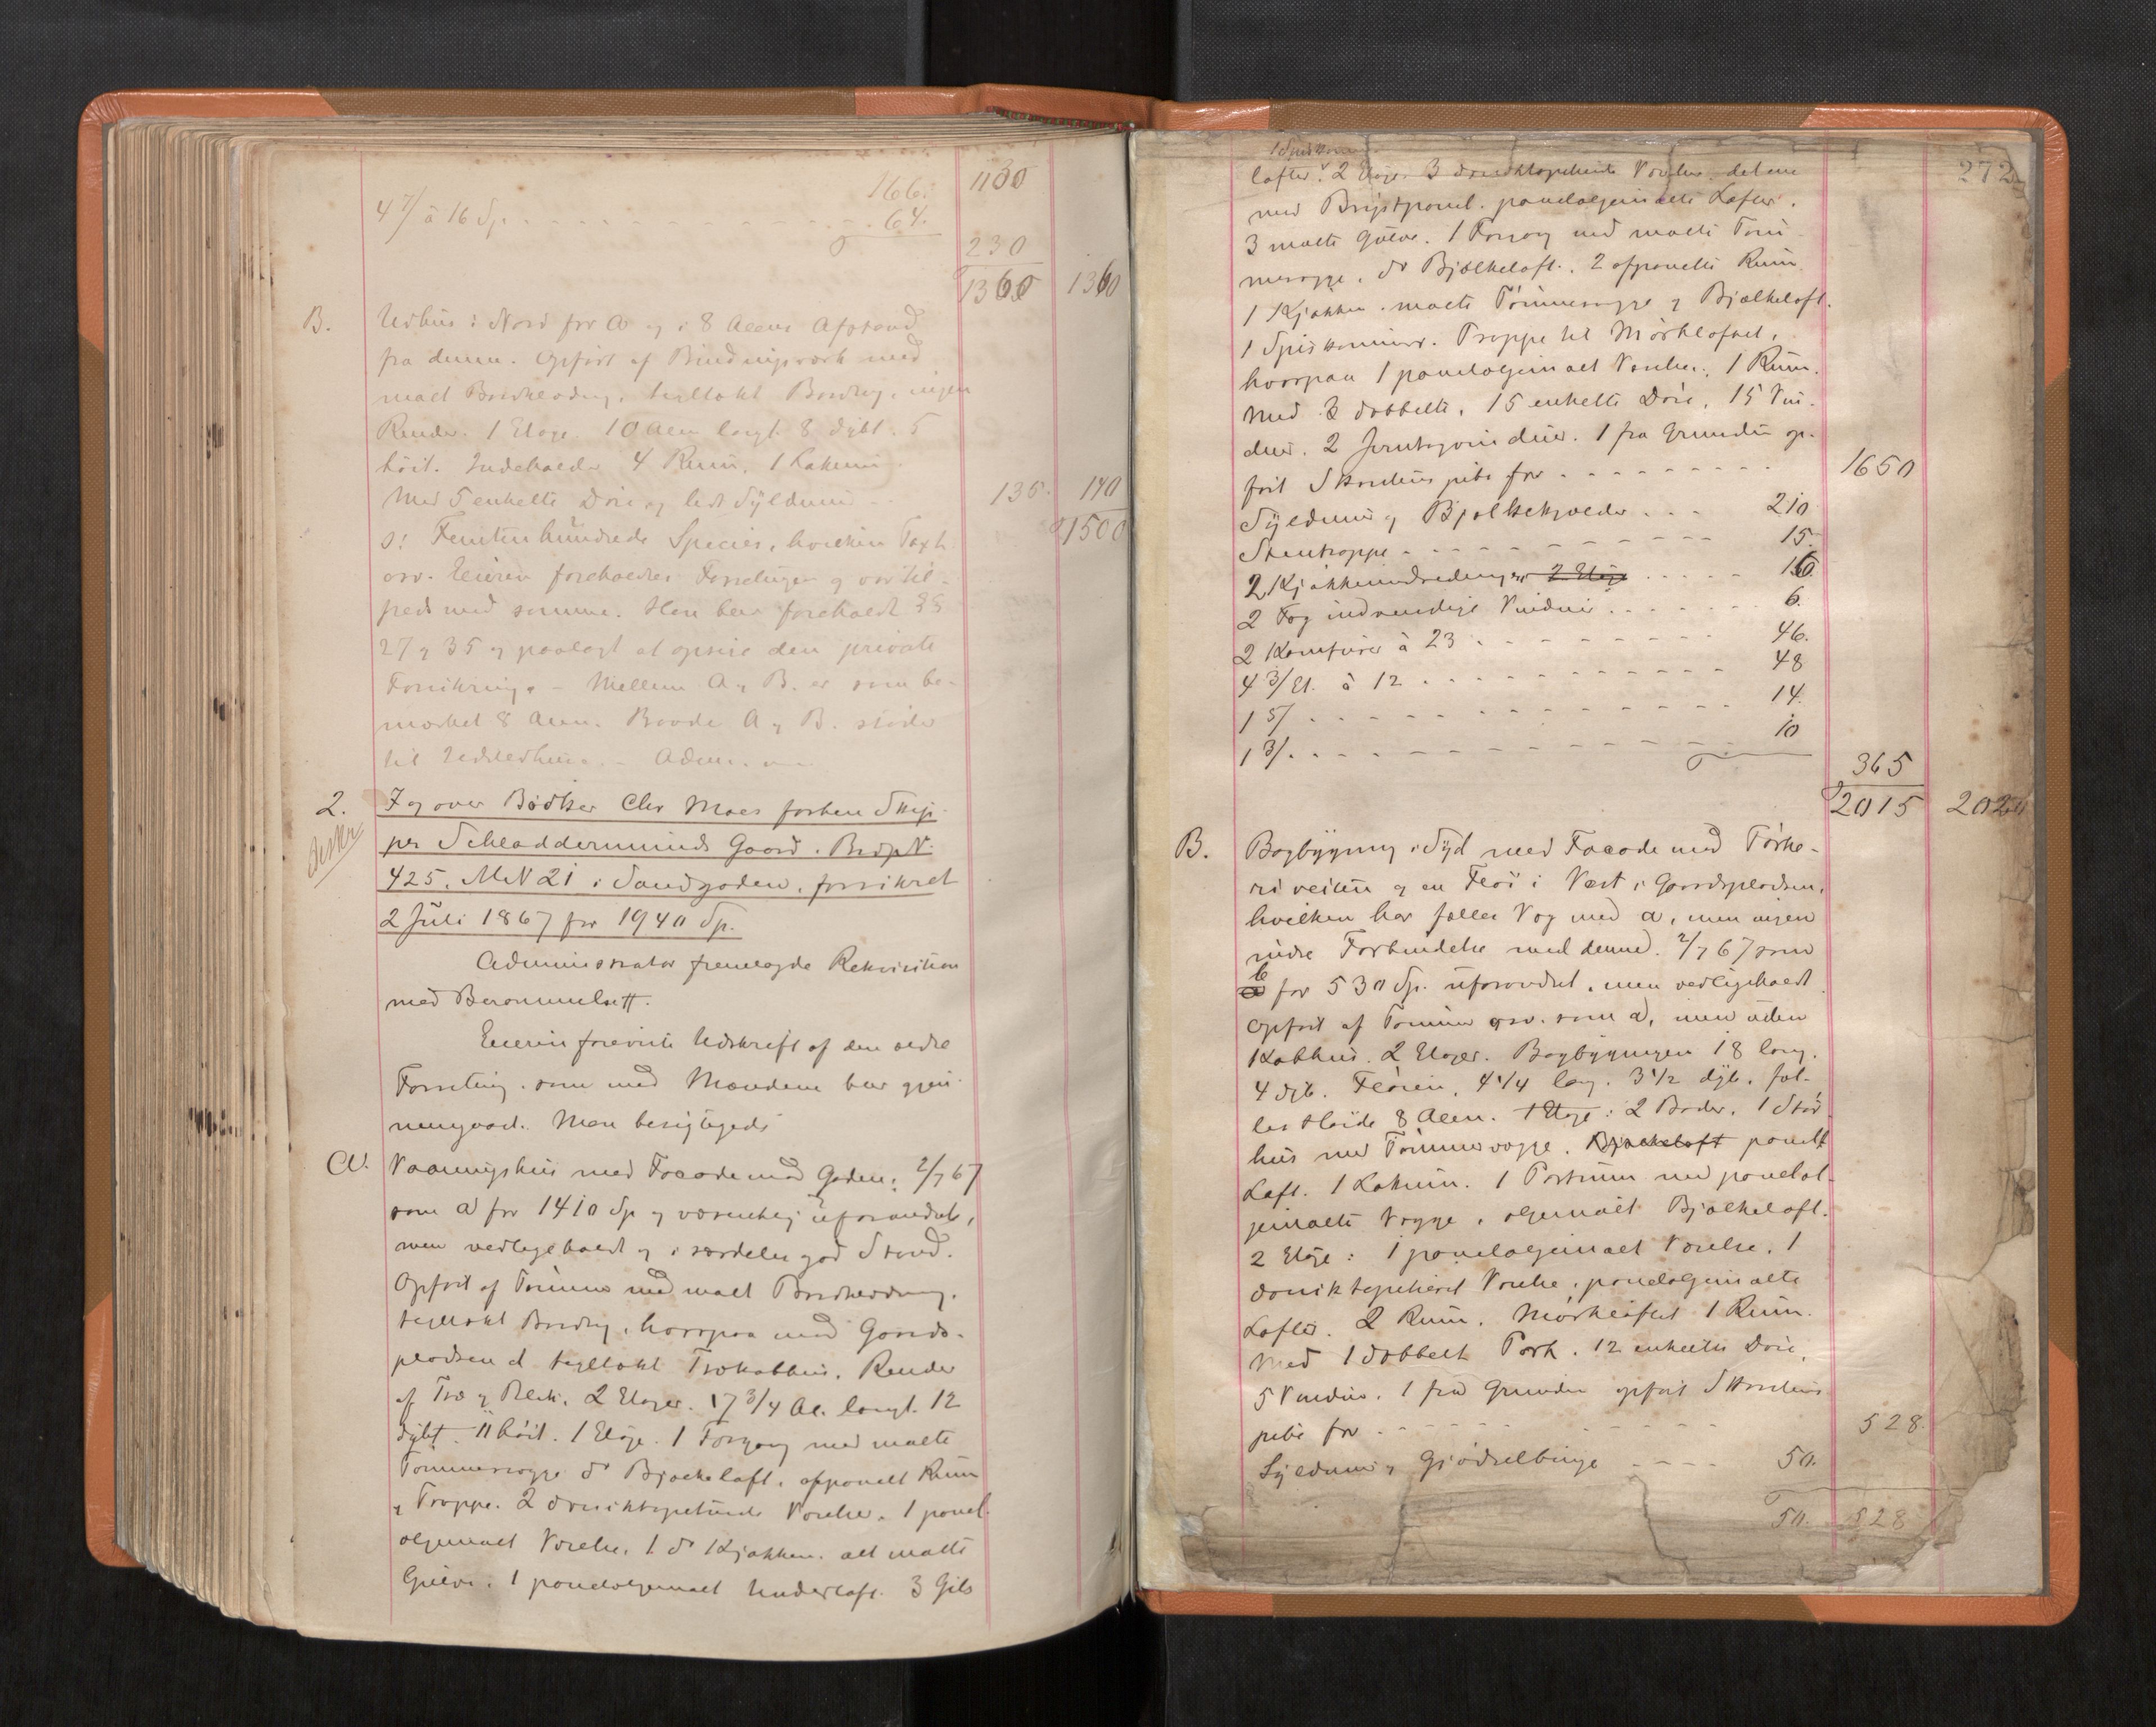 166. 1130
4 7/ à 16 Sp. - - - - - 64.
230
1360 1360
B. Udhus i Nord for A og i 8 Alens Afstand
fra denne. Opført af Bindingsværk med
malt Bordklædng, tegltækt Bordtag, ingen
Render. 1 Etage. 10 Alen langt. 8 dybt. 5
høit. Indeholder 4 Rum, 1 Lokum.
Med 5 enkelte Døre og lidt Syldmur - 135. 140
1500
s: Femtenhundrede Species, hvilken Taxt
osv. Eieren foreholdtes Forseelsen og var til-
freds med samme. Han blev foreholdt §§
27 og 35 og paalagt at opsige den private
Forsikring. - Mellem A og B. er som be-
mærket 8 Alen. Baade A og B. støder
til Udsledhus. - Adm.
2. I og over Bødker Chr Moes forhen Skip-
per Schladdermunds Gaard. BrdpN.
425. MN 21 i Sandgaden, forsikret
2 Juli 1867 for 1940 Sp.
Administrator fremlagde Rekvisition
med Berammelse.
Eieren foreviste Udskrift af den ældre
Forretning, som med Mændene blev gjen-
nemgaaet. Man besigtigede
A. Vaaningshus med Facade mod Gaden, 2/7 67
som a for 1410 Sp og væsentlig uforandret,
men vedligeholdt og i særdeles god Stand.
Opført af Tømmer med malt Bordklædning,
tegltækt Bordtag, hvorpaa mod Gaards-
pladsen et tegltækt Trækobbhus. Render
af Træ og Blik. 2 Etager. 17 3/4 Al. langt. 12
dybt. 11 høit. 1 Etage. 1 Forgang med malte
Tømmervægge do Bjælkeloft, afpanelt Rum
og Trappe. 2 donsiktapetserede Værelser. 1 panel-
oljemalt Værelse. 1 do Kjøkken. alt malte
Gulve. 1 paneloljemalt Underloft. 3 Gibs
272
1 Spisk
lofter. 2 Etage. 3 donsiktapetserede Værelser. det ene
med Brystpanel. paneloljemalte Lofter.
3 malte Gulve. 1 Forgang med malte Tøm-
mervægge, do Bjælkeloft. 2 afpanelte Rum
1 Kjøkken. malte Tømmervægge og Bjælkeloft.
1 Spiskammer. Trappe til Mørkloftet,
hvorpaa 1 paneloljemalt Værelse. 1 Rum.
Med 3 dobbelte, 15 enkelte Døre, 15 Vin-
duer. 2 Jerntagvinduer. 1 fra Grunden op-
ført Skorstenspibe for - - - - 1650
Syldmur og Bjælkekjælder - - - 210
Stentrappe - - - - - 15.
2 Kjøkkenindredninger 2 Etage - - - 16.
2 Fag indvendige Vinduer - - - 6.
2 Komfurer à 23 - - - 46.
4 3/Et. à 12 - - - - 48
1 5/ - - - - - 14.
1 3/. - - - - - 10
365
2015 2020
B. Bagbygning i Syd med Facade mod Tørke-
riveiten og en Fløi i Vest i Gaardspladsen,
hvilken har fælles Væg med a, men ingen
indre Forbindelse med denne. 2/7 67 som
b for 530 Sp. uforandret, men vedligeholdt.
Opført af Tømmer osv. som a, men uden
Kobbhus. 2 Etager. Bagbygningen 18 lang.
4 dyb. Fløien 4 1/4 lang. 3 1/2 dyb. fæl-
les Høide 8 Alen. 1 Etage: 2 Boder. 1 Stød
hus med Tømmervægge. Bjælkeloft panelt
Loft. 1 Lokum. 1 Portrum med panelol-
jemalte Vægge, oljemalt Bjælkeloft.
2 Etage: 1 paneloljemalt Værelse. 1
donsiktapetseret Værelse, paneloljemalte
Lofter. 2 Rum. Mørkloftet 1 Rum.
Med 1 dobbelt Port. 12 enkelte Døre,
5 Vinduer. 1 fra Grunden opført Skorstens
pibe for - - - - 528.
Syldmur og Gjødselbinge - - - - 50.
50. 528